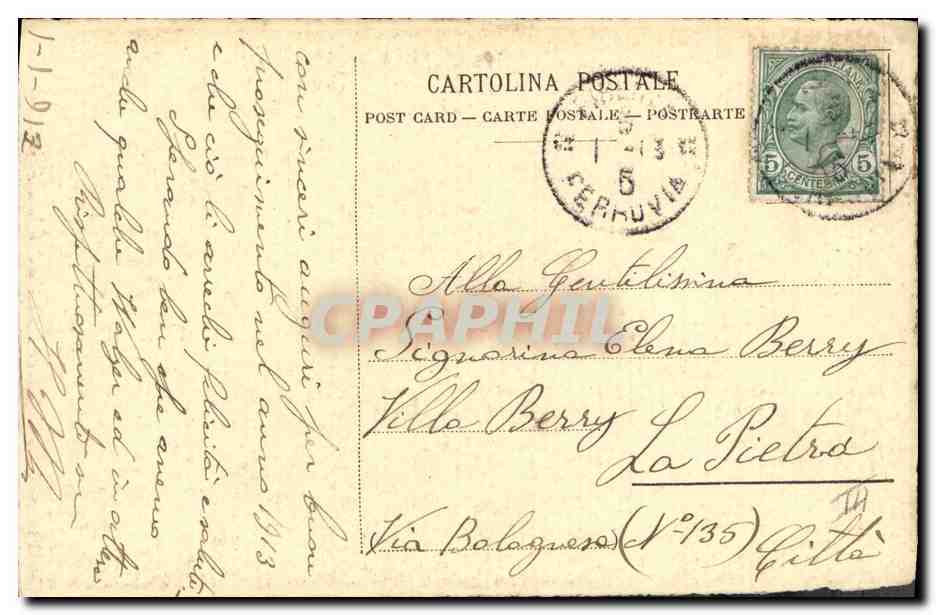 CARTOLINA POSTALE
POST CARD — CARTE POSTALE — POSTKARTE
FERROVIA
5
5 CENTES 5
Alla Gentilissima
Signorina Elena Berry
Villa Berry
La Pietra
Via Bolognese (N° 135)
Città
con sinceri auguri per buon
proseguimento nel anno 1913
e che ciò li arrechi felicità e salute
Sperando ben che avremo
anche qualche Walzer ed in attesa
Rispettuosamente
1-1-912
CPAPHIL